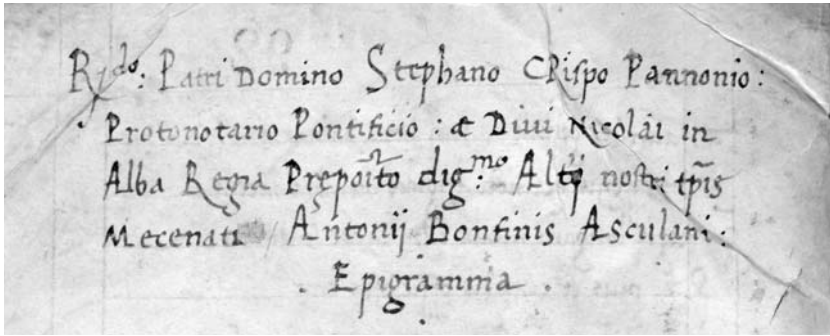 R.do: Patri Domino Stephano CRispo Pannonio:
Protonotario Pontificio: & Diui Nicolai in
Alba Regia Prępoito dig.mo: nostri tp̄is
Mecenati / Antonij Bonfinis Asculani:
. Epigramma .